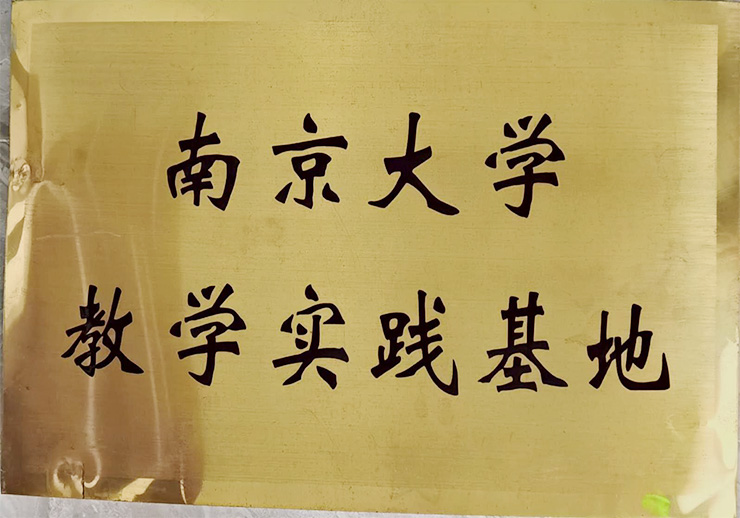 南京大学
教学实践基地